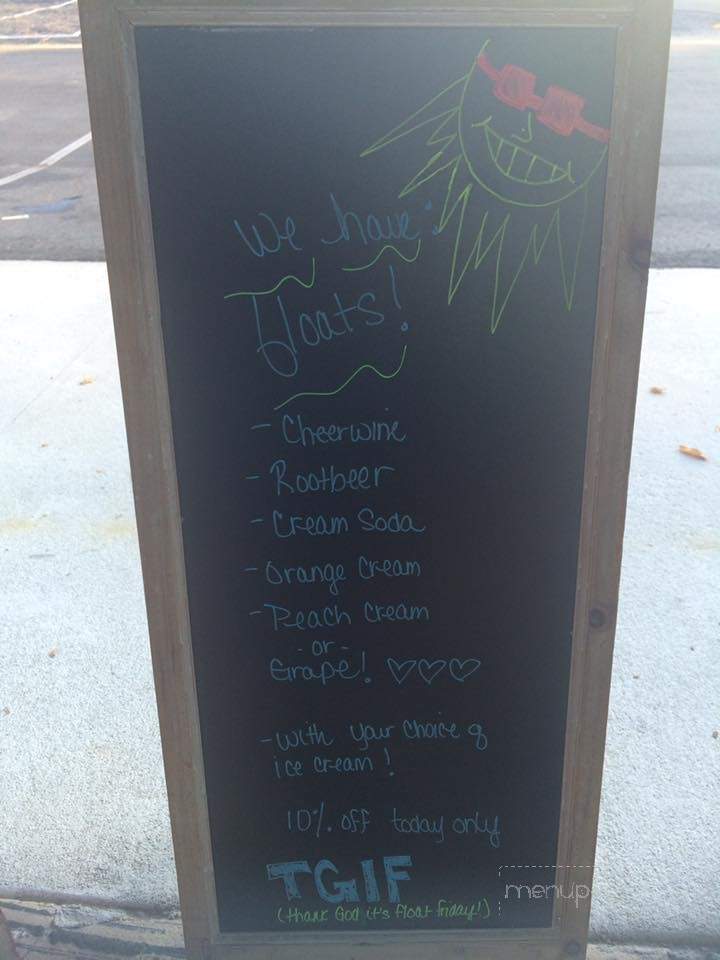 We have:
floats!
- Cheerwine
- Rootbeer
- Cream Soda
- Orange Cream
- Peach Cream
- or -
Grape! ♡♡♡
- with your choice of
ice cream!
10% off today only
TGIF
(thank God it's float friday!)
menup